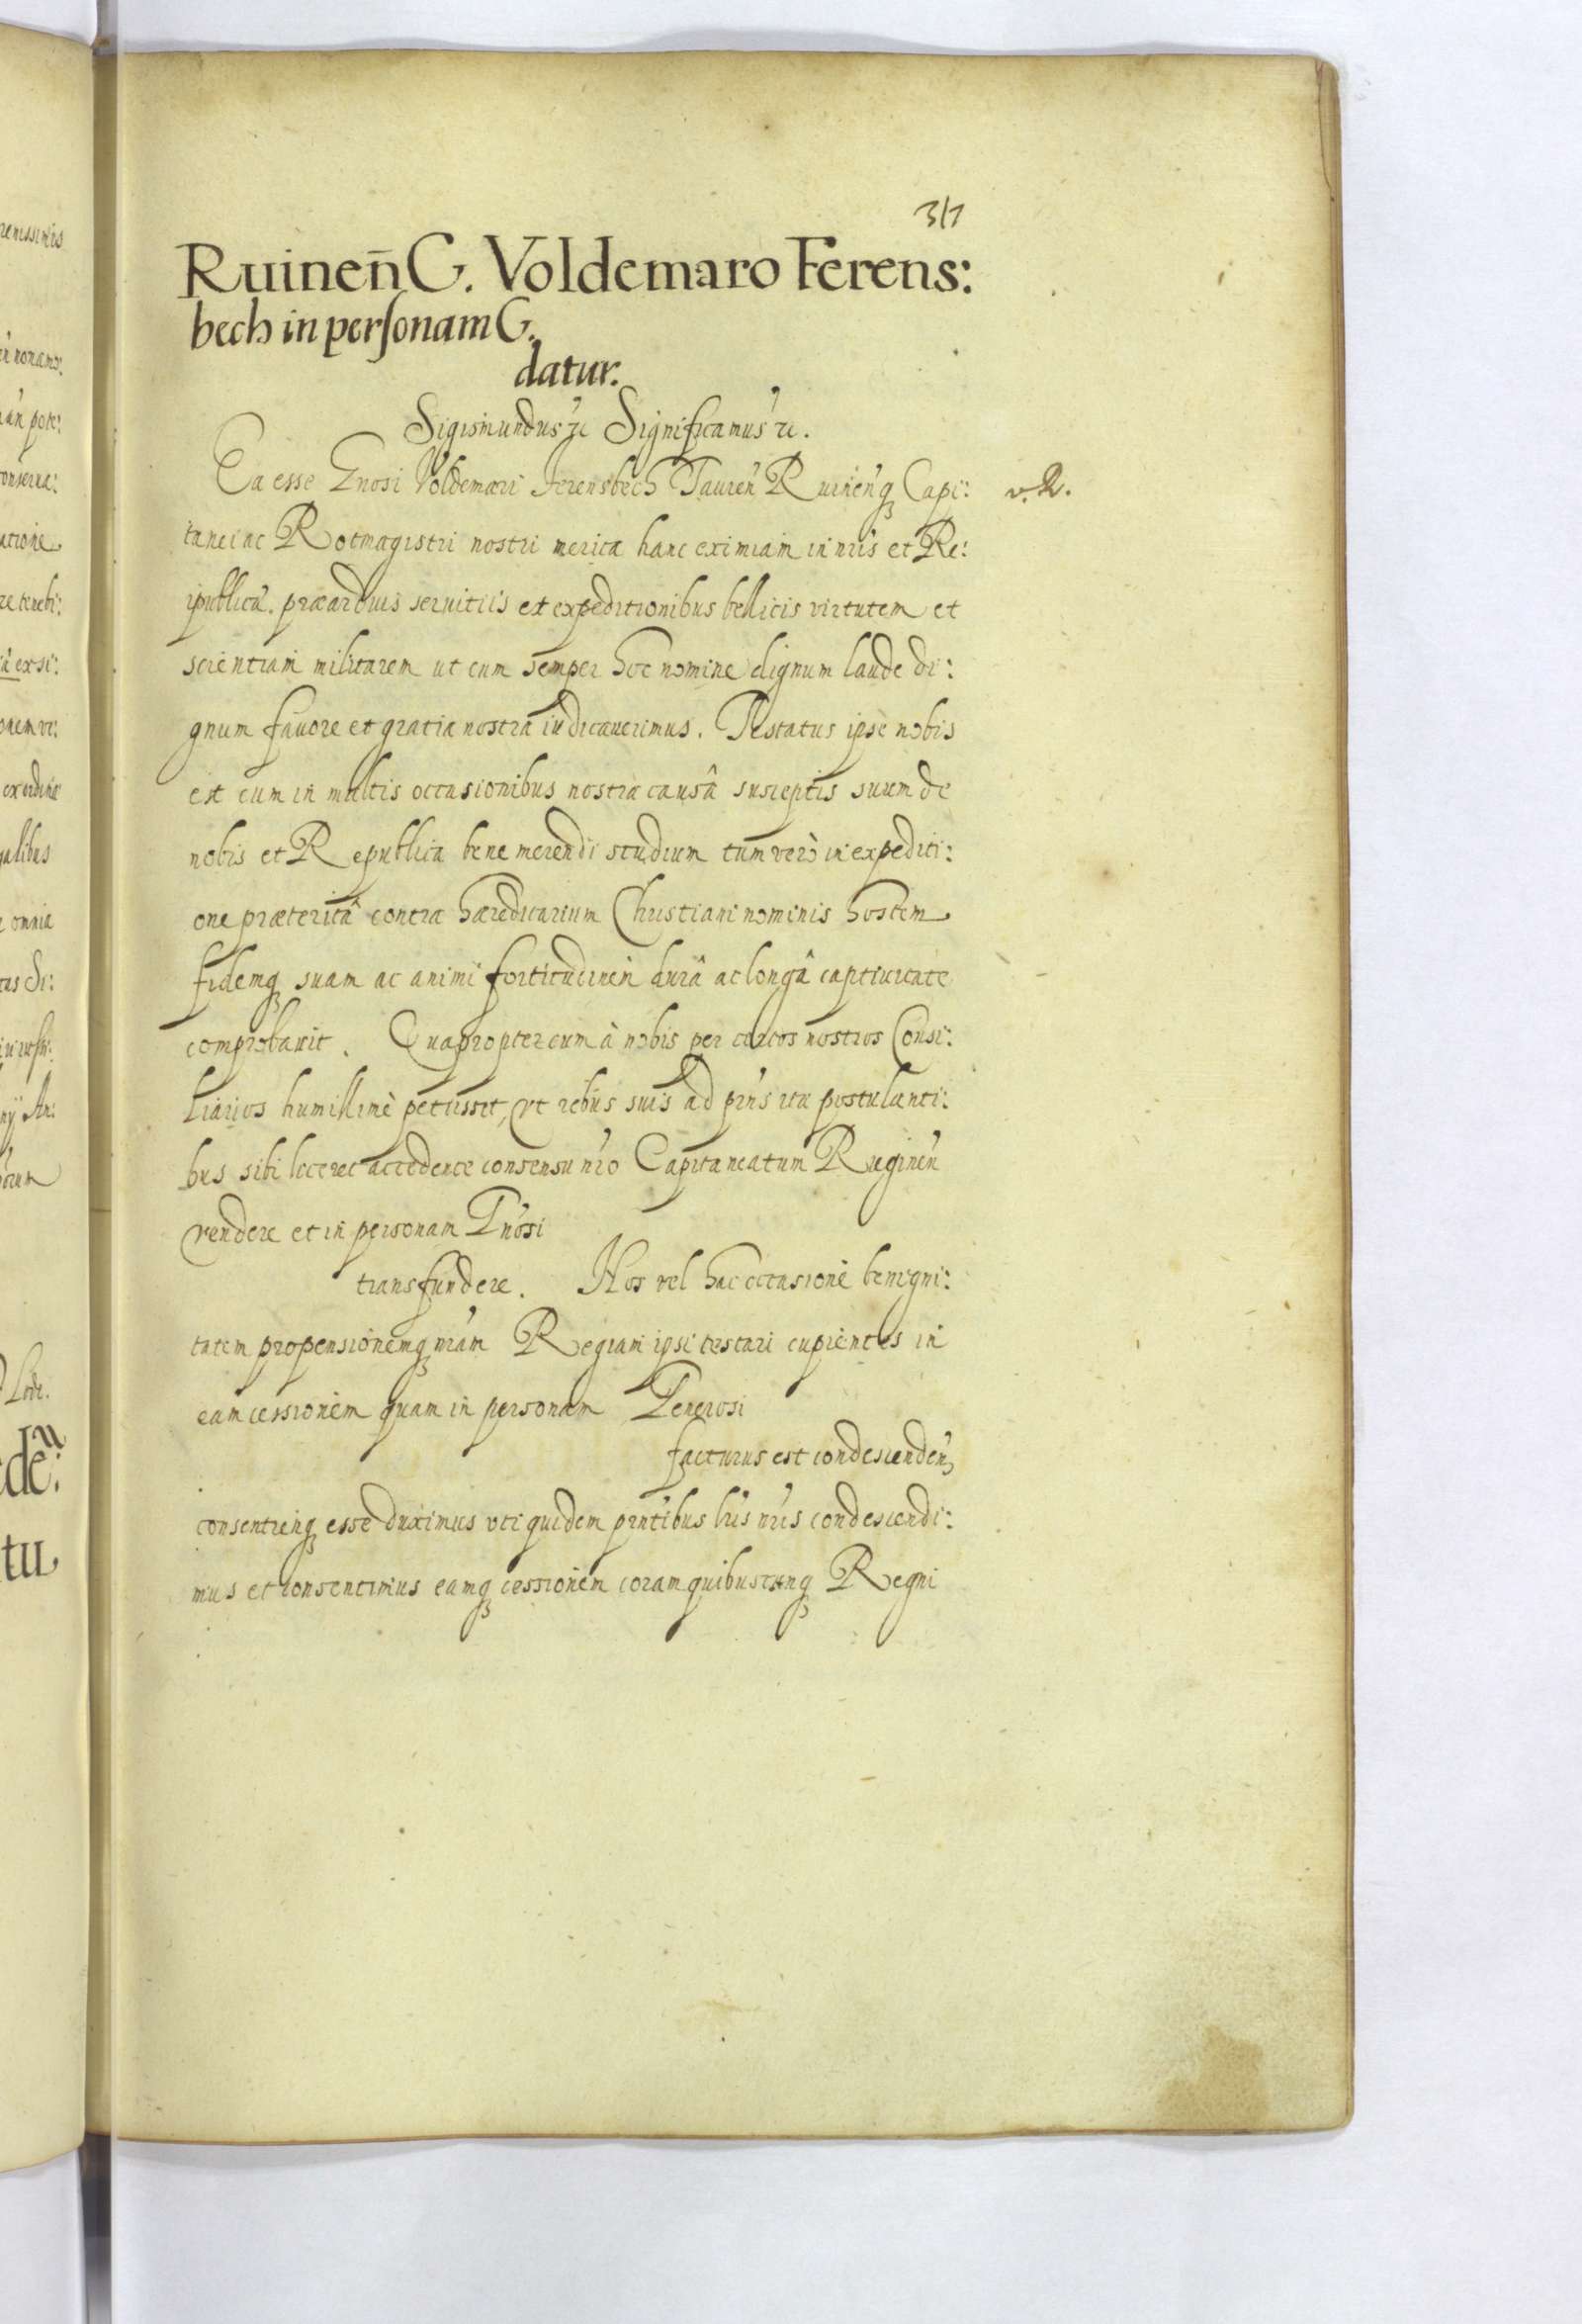 317
Ruineñ G. Voldemaro Ferens:
bech in personam G.
datur.
Sigismundus etc Significamus etc.
Ea esse Gnosi Voldemari Ferensbech Tauren Ruinenq Capi: v. R.
tanei ac Rotmagistri nostri merita hanc eximiam in nris et Re:
ipublicae. praearduis seruitiis et expeditionibus bellicis virtutem et
scientiam militarem ut eum semper hoc nomine dignum laude di:
gnum fauore et gratia nostra iudicauerimus. Testatus ipse nobis
est cum in multis occasionibus nostra causâ susceptis suum de
nobis et Republica bene merendi studium tum verò in expediti:
one praeteritâ contra haereditarium Christiani nominis hostem
fidemq suam ac animi fortitudinem durâ ac longâ captiuitate
comprobauit. Quapropter cum à nobis per certos nostros Consi:
liarios humillimè petiisset, vt rebus suis ad pñs ita postulanti:
bus sibi liceret accedente consensu nro Capitaneatum Ruginen
vendere et in personam Gnosi
transfundere. Nos vel hac occasione benigni:
tatem propensionemq nram Regiam ipsi testari cupientes in
eam cessionem quam in personam Generosi
facturus est condescenden,
consentienq esse duximus vti quidem pntibus lris nris condescendi:
mus et consentimus eamq cessionem coram quibuscunq Regni